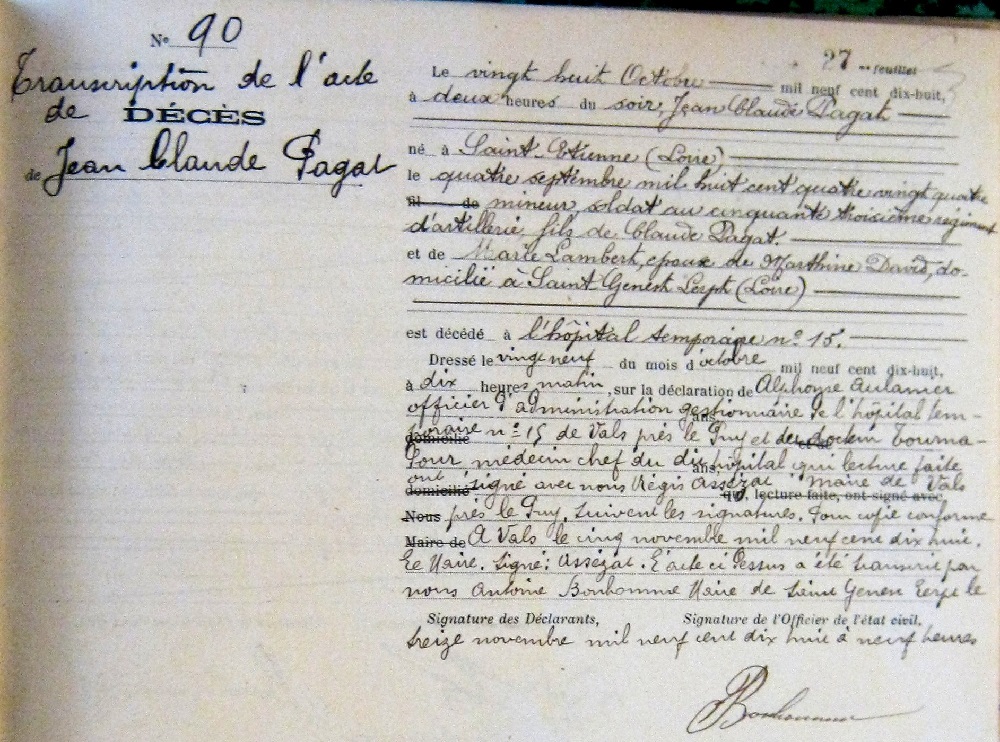 Nº 90
Transcription de l'acte
de DÉCÈS
de Jean Claude Pagat
27 feuillet
Le vingt huit Octobre mil neuf cent dix-huit,
à deux heures du soir, Jean Claude Pagat
né à Saint-Etienne (Loire)
le quatre septembre mil huit cent quatre vingt quatre
fil de mineur, soldat au cinquante troisième régiment
d'artillerie, fils de Claude Pagat.
et de Marie Lambert, époux de Marthine David, do-
micilié à Saint Genest Lerpt (Loire)
est décédé à l'hôpital temporaire nº 15.
Dressé le vingt neuf du mois d'octobre mil neuf cent dix-huit,
à dix heures matin, sur la déclaration de Alphonse Aulanier
officier d'administration gestionnaire de l'hôpital tem-
ans,
poraire nº 15 de Vals près le Puy et du docteur Tourna-
domicilié et de
médecin chef du dit hôpital qui lecture faite
ans,
ont signé avec nous Régis Assézat Maire de Vals
domicilié qui, lecture faite, ont signé avec
Nous près le Puy. Suivent les signatures. Pour copie conforme
Maire de A Vals le cinq novembre mil neuf cent dix huit.
Le Maire. Signé: Assézat. L'acte ci dessus a été transcrit par
nous Antoine Bonhomme Maire de Saint Genest Lerpt le
Signature des Déclarants, Signature de l'Officier de l'état civil,
seize novembre mil neuf cent dix huit à neuf heures
Bonhomme